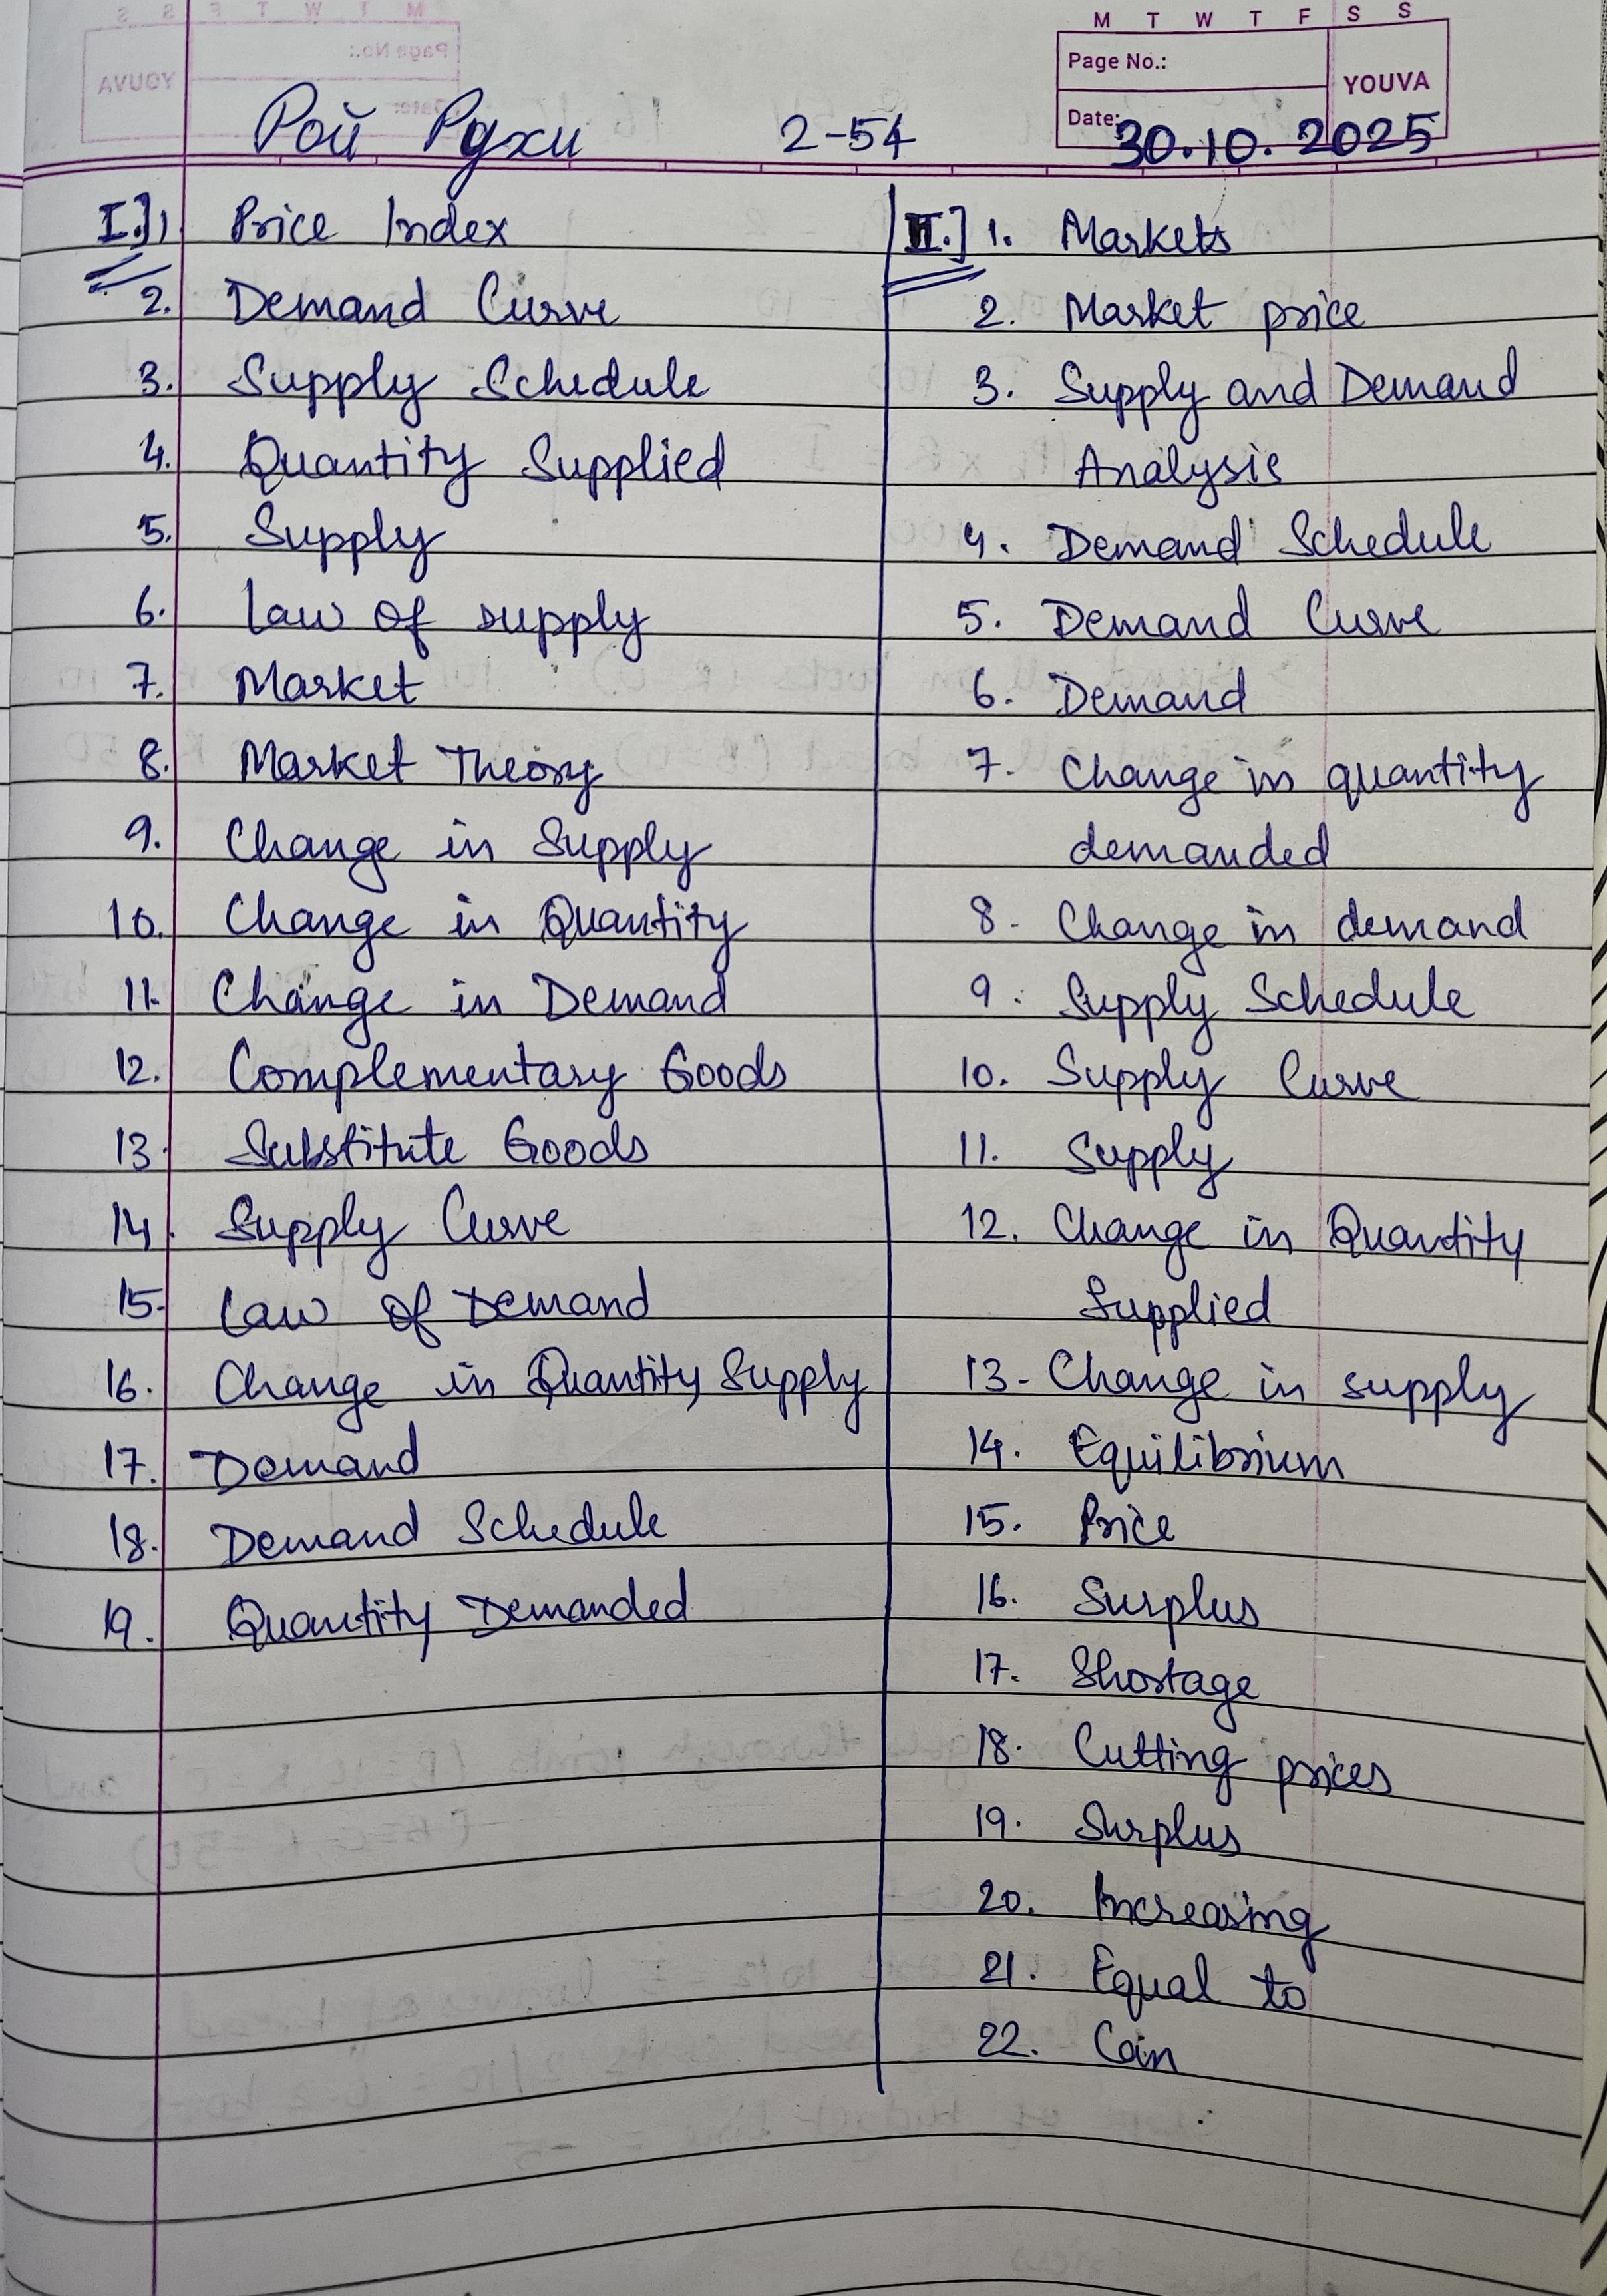 M T W T F S S
Page No.:
YOUVA
Date: 30.10.2025
Рой Рджи 2-54
I.] 1. Price Index
2. Demand Curve
3. Supply Schedule
4. Quantity Supplied
5. Supply
6. Law of supply
7. Market
8. Market Theory
9. Change in Supply
10. Change in Quantity
11. Change in Demand
12. Complementary Goods
13. Substitute Goods
14. Supply Curve
15. Law of Demand
16. Change in Quantity Supply
17. Demand
18. Demand Schedule
19. Quantity Demanded
II.] 1. Markets
2. Market price
3. Supply and Demand
Analysis
4. Demand Schedule
5. Demand Curve
6. Demand
7. Change in quantity
demanded
8. Change in demand
9. Supply Schedule
10. Supply Curve
11. Supply
12. Change in Quantity
Supplied
13. Change in supply
14. Equilibrium
15. Price
16. Surplus
17. Shortage
18. Cutting prices
19. Surplus
20. Increasing
21. Equal to
22. Coin